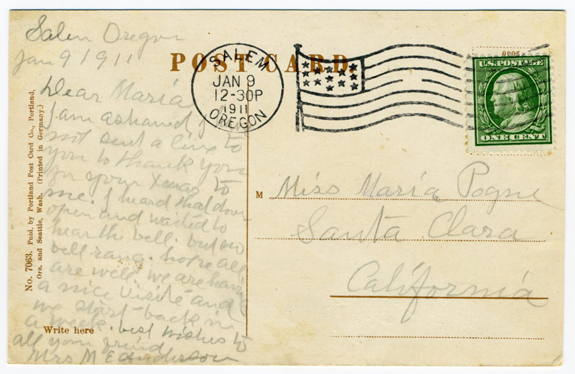 Salem Oregon
Jan 9 1911
POST CARD
SALEM
JAN 9
12-30P
1911
OREGON
U.S. POSTAGE
ONE CENT
Dear Maria
I am ashamed I
not sent a line to
you to thank you
for your Xmas to
me. I heard that door
open and waited to
hear the bell. but no
bell rang. hope all
are well. we are having
a nice visite and
we start back in
a week. best wishes to
all your
Mrs M E
M
Miss Maria Pogue
Santa Clara
California
No. 7063. Publ. by Portland Post Card Co., Portland,
Ore. and Seattle, Wash. (Printed in Germany.)
Write here